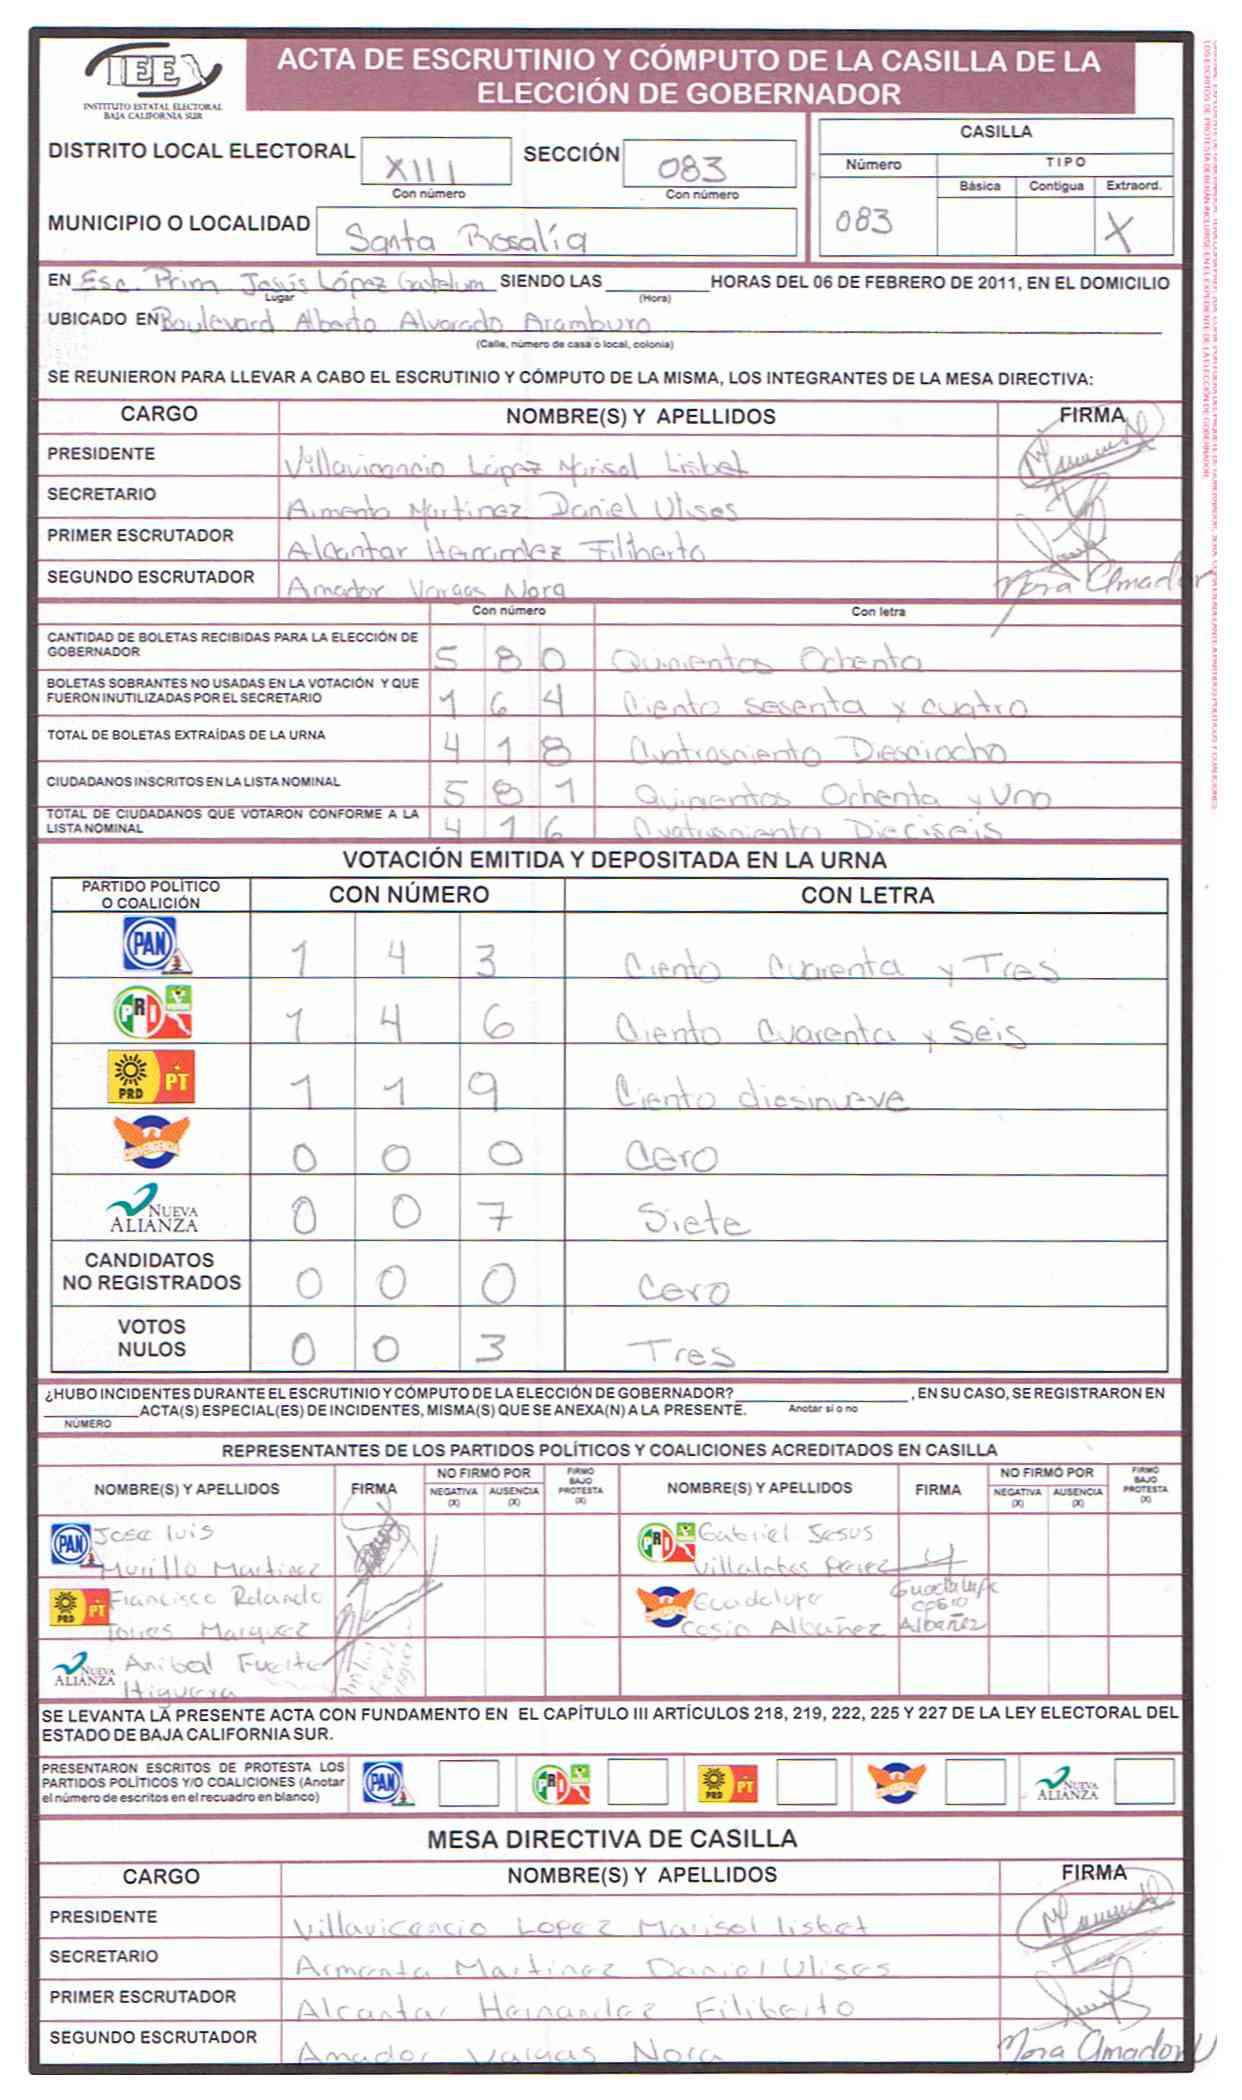 IEE
INSTITUTO ESTATAL ELECTORAL
BAJA CALIFORNIA SUR
ACTA DE ESCRUTINIO Y CÓMPUTO DE LA CASILLA DE LA
ELECCIÓN DE GOBERNADOR
DISTRITO LOCAL ELECTORAL XIII SECCIÓN 083
Con número Con número
MUNICIPIO O LOCALIDAD Santa Rosalía
CASILLA
Número TIPO
Básica Contigua Extraord.
083 X
EN Esc. Prim Jesús López Gastelum SIENDO LAS HORAS DEL 06 DE FEBRERO DE 2011, EN EL DOMICILIO
Lugar (Hora)
UBICADO EN Boulevard Alberto Alvarado Aramburo
(Calle, número de casa o local, colonia)
SE REUNIERON PARA LLEVAR A CABO EL ESCRUTINIO Y CÓMPUTO DE LA MISMA, LOS INTEGRANTES DE LA MESA DIRECTIVA:
CARGO NOMBRE(S) Y APELLIDOS FIRMA
PRESIDENTE Villavicencio López Marisol Lisbet
SECRETARIO Armenta Martinez Daniel Ulises
PRIMER ESCRUTADOR Alcantar Hernandez Filiberto
SEGUNDO ESCRUTADOR Amador Vargas Nora Nora Amador
Con número Con letra
CANTIDAD DE BOLETAS RECIBIDAS PARA LA ELECCIÓN DE
GOBERNADOR 5 8 0 Quinientos Ochenta
BOLETAS SOBRANTES NO USADAS EN LA VOTACIÓN Y QUE
FUERON INUTILIZADAS POR EL SECRETARIO 1 6 4 Ciento sesenta y cuatro
TOTAL DE BOLETAS EXTRAÍDAS DE LA URNA 4 1 8 Cuatrosciento Diesciocho
CIUDADANOS INSCRITOS EN LA LISTA NOMINAL 5 8 1 Quinientos Ochenta y Uno
TOTAL DE CIUDADANOS QUE VOTARON CONFORME A LA
LISTA NOMINAL 4 1 6 Dieciseis
VOTACIÓN EMITIDA Y DEPOSITADA EN LA URNA
PARTIDO POLÍTICO
O COALICIÓN CON NÚMERO CON LETRA
PAN 1 4 3 Ciento Cuarenta y Tres
PRI 1 4 6 Ciento Cuarenta y Seis
PRD PT 1 1 9 Ciento diesinueve
CONVERGENCIA 0 0 0 Cero
NUEVA ALIANZA 0 0 7 Siete
CANDIDATOS
NO REGISTRADOS 0 0 0 Cero
VOTOS
NULOS 0 0 3 Tres
¿HUBO INCIDENTES DURANTE EL ESCRUTINIO Y CÓMPUTO DE LA ELECCIÓN DE GOBERNADOR? , EN SU CASO, SE REGISTRARON EN
ACTA(S) ESPECIAL(ES) DE INCIDENTES, MISMA(S) QUE SE ANEXA(N) A LA PRESENTE. Anotar sí o no
NÚMERO
REPRESENTANTES DE LOS PARTIDOS POLÍTICOS Y COALICIONES ACREDITADOS EN CASILLA
NOMBRE(S) Y APELLIDOS FIRMA NO FIRMÓ POR NEGATIVA (X) AUSENCIA (X) FIRMÓ BAJO PROTESTA (X) NOMBRE(S) Y APELLIDOS FIRMA NO FIRMÓ POR NEGATIVA (X) AUSENCIA (X) FIRMÓ BAJO PROTESTA (X)
PAN Jose luis PRI Gabriel Jesus
Murillo Martinez Villalobos Perez
PRD PT Francisco Rolando Guadalupe Guadalupe
Torres Marquez Cosio Albañez Cosio Albañez
NUEVA ALIANZA Anibal Fuerte
Higuera
SE LEVANTA LA PRESENTE ACTA CON FUNDAMENTO EN EL CAPÍTULO III ARTÍCULOS 218, 219, 222, 225 Y 227 DE LA LEY ELECTORAL DEL
ESTADO DE BAJA CALIFORNIA SUR.
PRESENTARON ESCRITOS DE PROTESTA LOS
PARTIDOS POLÍTICOS Y/O COALICIONES (Anotar
el número de escritos en el recuadro en blanco) PAN PRI PRD PT CONVERGENCIA NUEVA ALIANZA
MESA DIRECTIVA DE CASILLA
CARGO NOMBRE(S) Y APELLIDOS FIRMA
PRESIDENTE Villavicencio Lopez Marisol lisbet
SECRETARIO Armenta Martinez Daniel Ulises
PRIMER ESCRUTADOR Alcantar Hernandez Filiberto
SEGUNDO ESCRUTADOR Amador Vargas Nora Nora Amador V